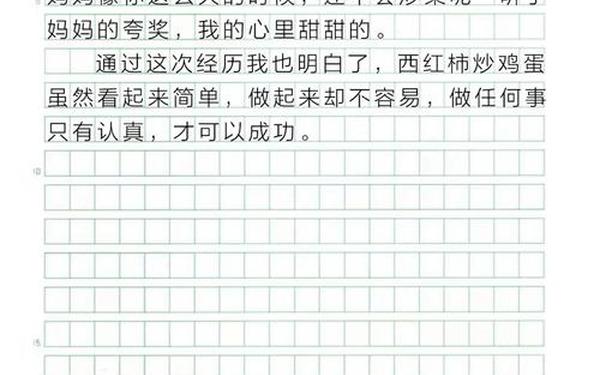 妈妈的夸奖，我的心里甜甜的。
通过这次经历我也明白了，西红柿炒鸡蛋
虽然看起来简单，做起来却不容易，做任何事
只有认真，才可以成功。
10
15